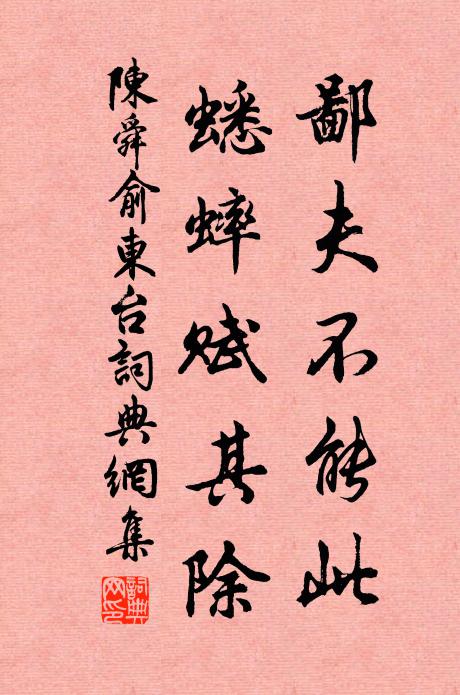 鄙夫不能此
蟋蟀賦其除
陳舜俞東台詞典網集
詞典网印